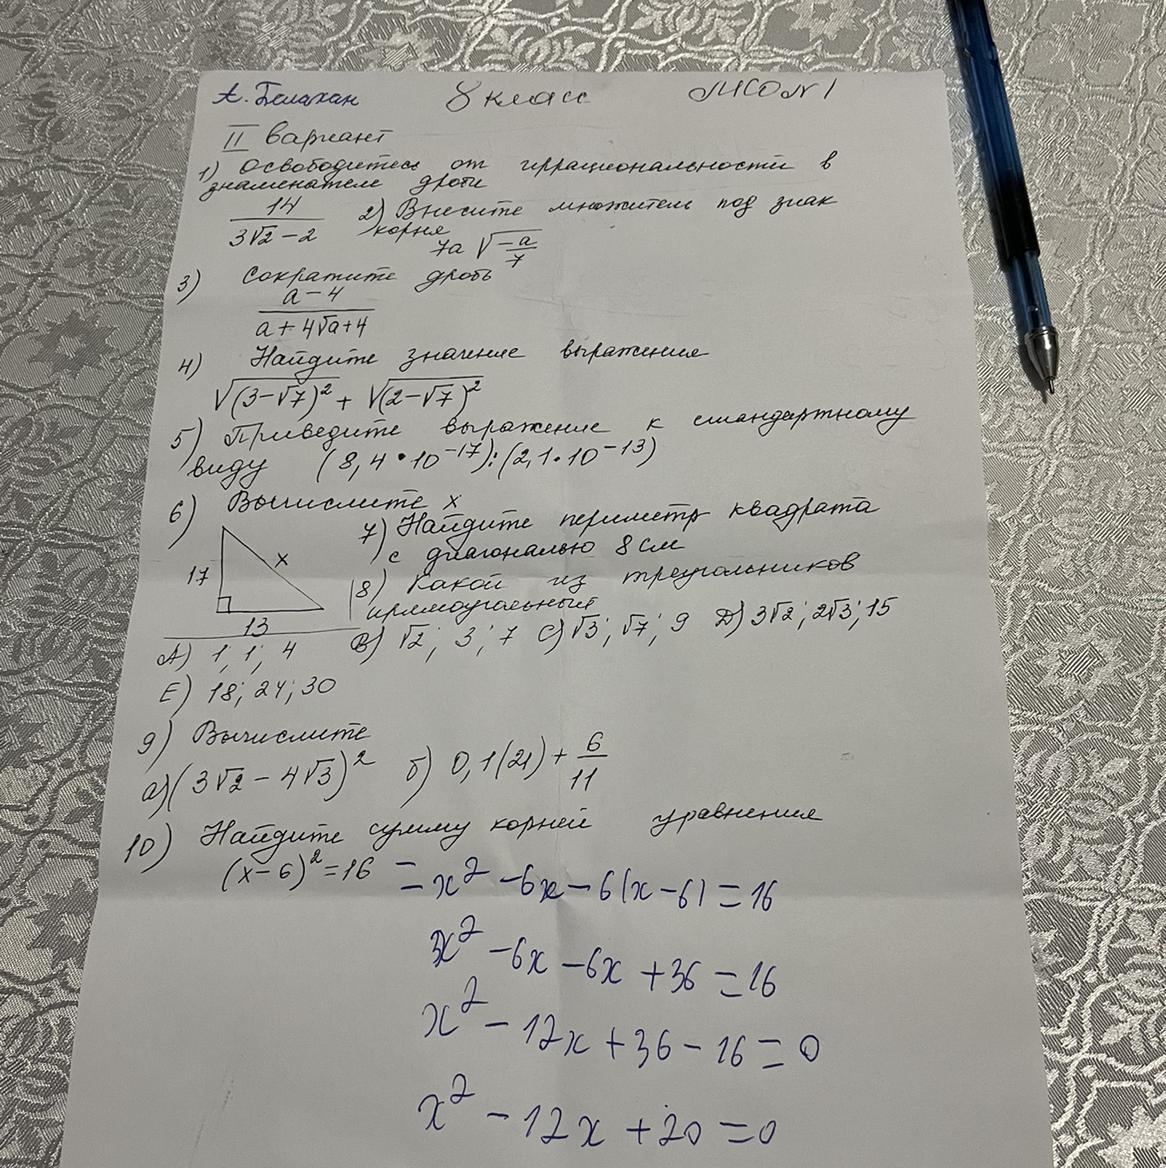 А. Белахан 8 класс МСО №1
II вариант
1) Освободитесь от иррациональности в
знаменателе дроби
14/(3√2 - 2) 2) Внесите множитель под знак
корня
7a √(-a/7)
3) Сократите дробь
(a - 4)/(a + 4√a + 4)
4) Найдите значение выражения
√(3-√7)² + √(2-√7)²
5) Приведите выражение к стандартному
виду (8,4 • 10⁻¹⁷):(2,1•10⁻¹³)
6) Вычислите x
7) Найдите периметр квадрата
с диагональю 8 см
17 x
8) Какой из треугольников
прямоугольный
13
А) 1; 1; 4 В) √2; 3; 7 С) √3; √7; 9 Д) 3√2; 2√3; 15
Е) 18; 24; 30
9) Вычислите
а) (3√2 - 4√3)² б) 0,1(21) + 6/11
10) Найдите сумму корней уравнения
(x-6)² = 16 = x² - 6x - 6(x - 6) = 16
x² - 6x - 6x + 36 = 16
x² - 12x + 36 - 16 = 0
x² - 12x + 20 = 0